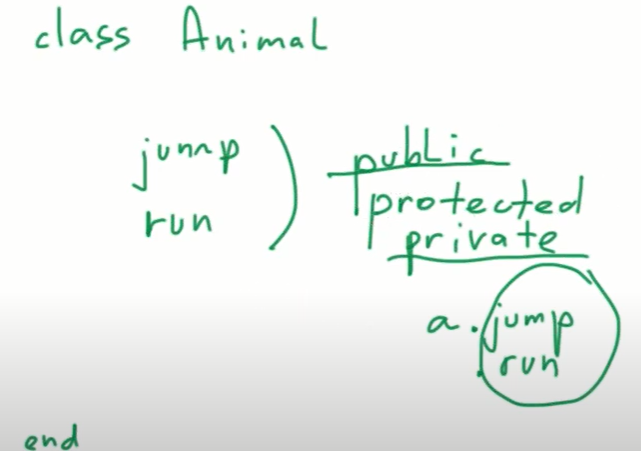 class Animal
jump
run
public
protected
private
a.jump
.run
end